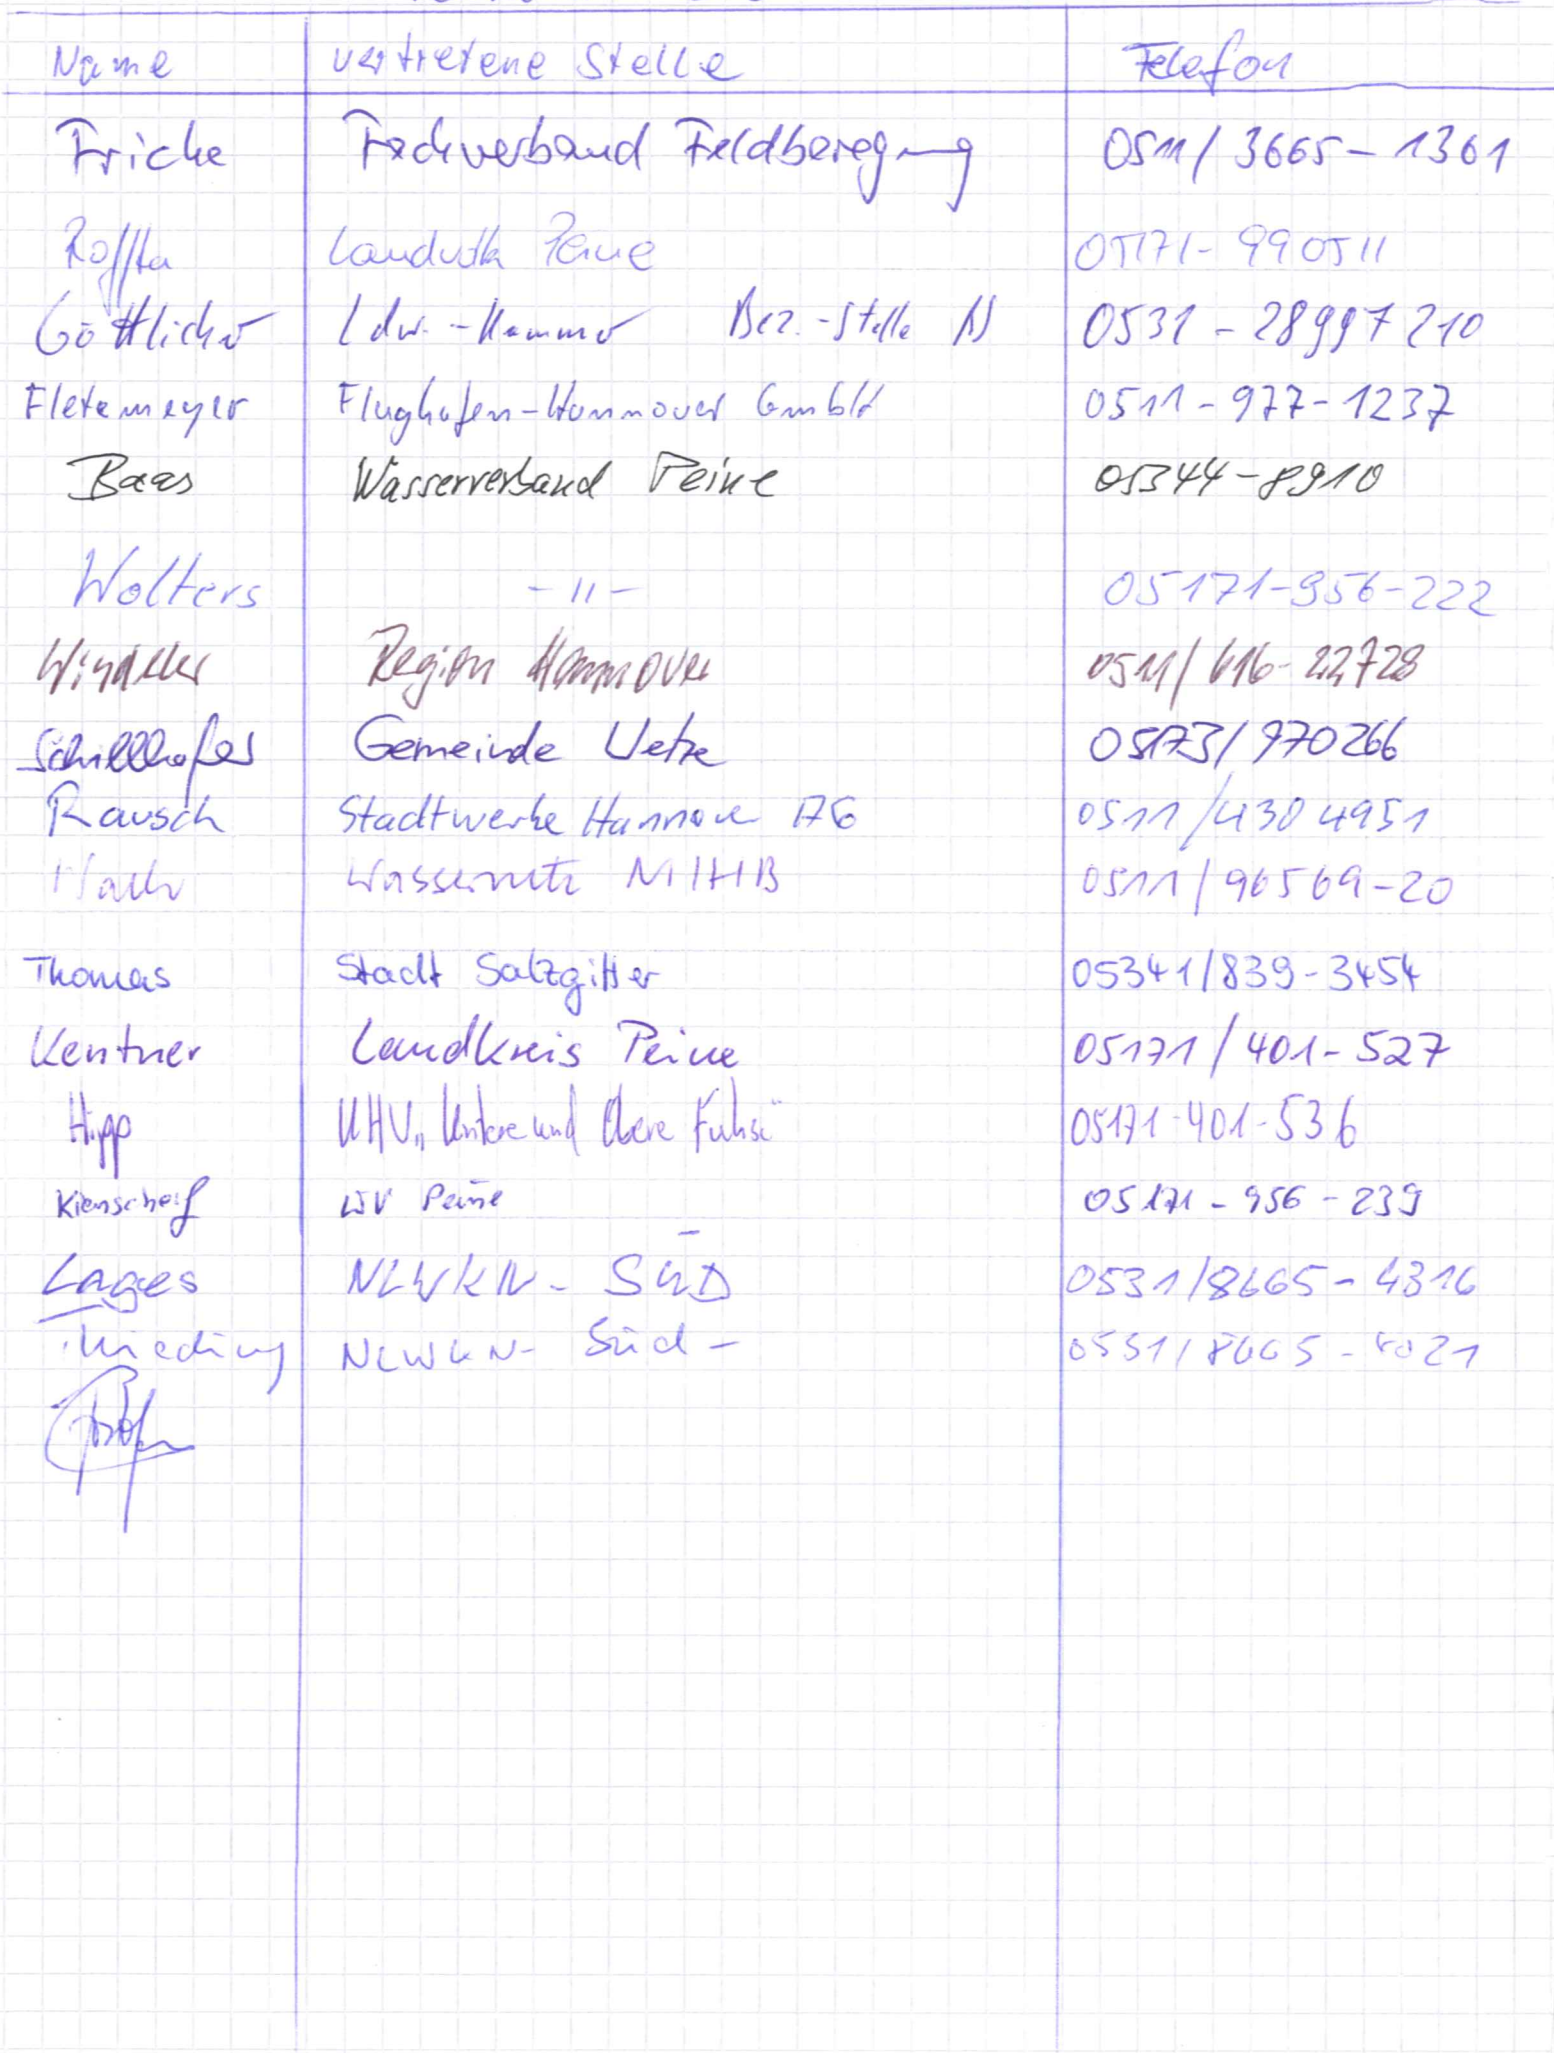 Name vertretene Stelle Telefon
Fricke Fachverband Feldberegnung 0511/3665-1361
Peine 05171-990511
Göttlicher Ldw.-Kammer Bez.-Stelle 0531-28997210
Flughafen-Hannover GmbH 0511-977-1237
Baas Wasserverband Peine 05344-8910
Wolters -"- 05171-956-222
Windeler Region Hannover 0511/616-22728
Schillhofer Gemeinde Uetze 05173/970266
Rausch Stadtwerke Hannover AG 0511/430 4951
0511/96569-20
Thomas Stadt Salzgitter 05341/839-3454
Kentner Landkreis Peine 05171/401-527
Hipp UHV „Untere und Obere Fuhse" 05171-401-536
WV Peine 05171-956-239
Lages NLWKN-SÜD 0531/8665-4316
NLWKN-Süd-